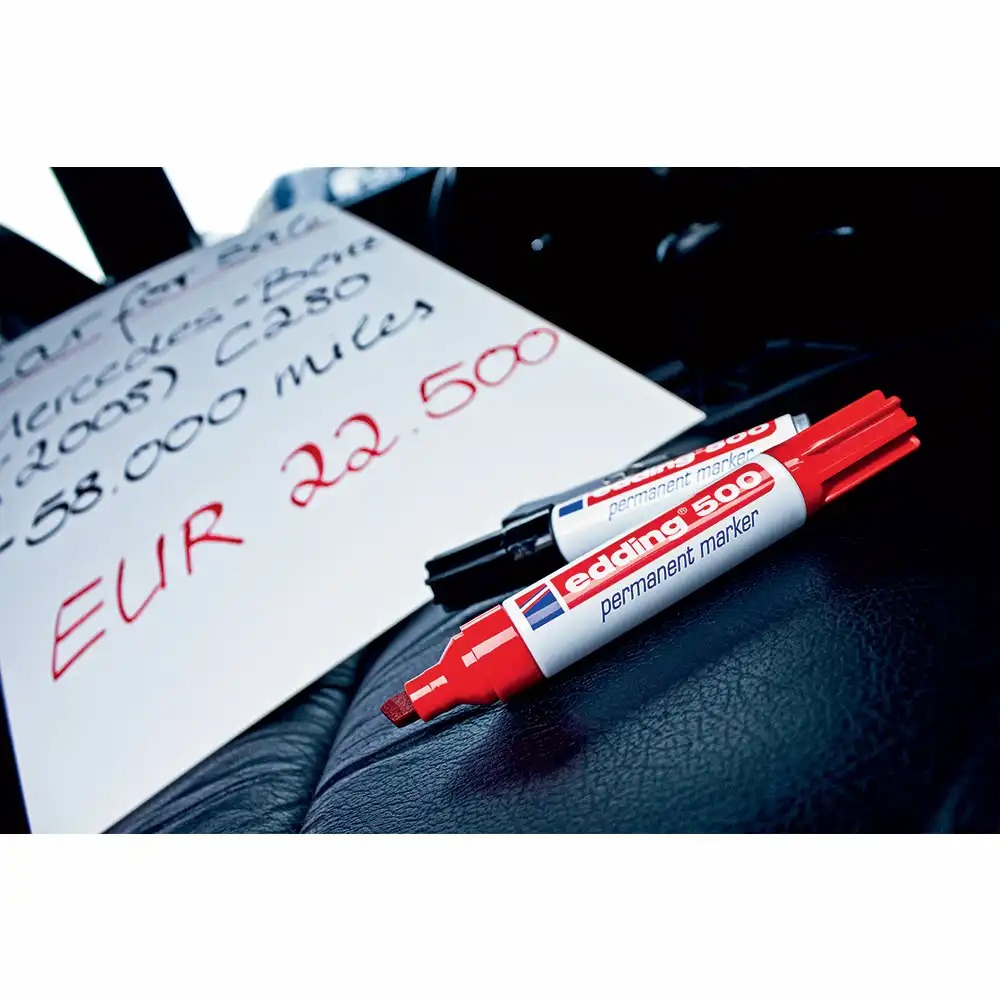 Car for Sale
Mercedes-Benz
(2008) C280
-58.000 miles
EUR 22.500
edding 500
permanent marker
edding® 500
permanent marker